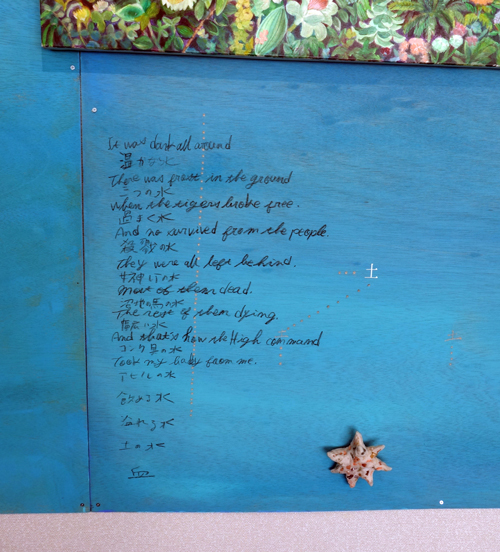 It was dark all around
温かな水
There was frost in the ground
二つの水
When the tigers broke free.
過ぎく水
And no survived from the people.
殺戮の水
They were all left behind.
の水
Most of them dead.
の水
The rest of them dying.
の水
And that's how the High command
の水
Took my baby from me.
アヒルの水
飲める水
溢れる水
土の水
土